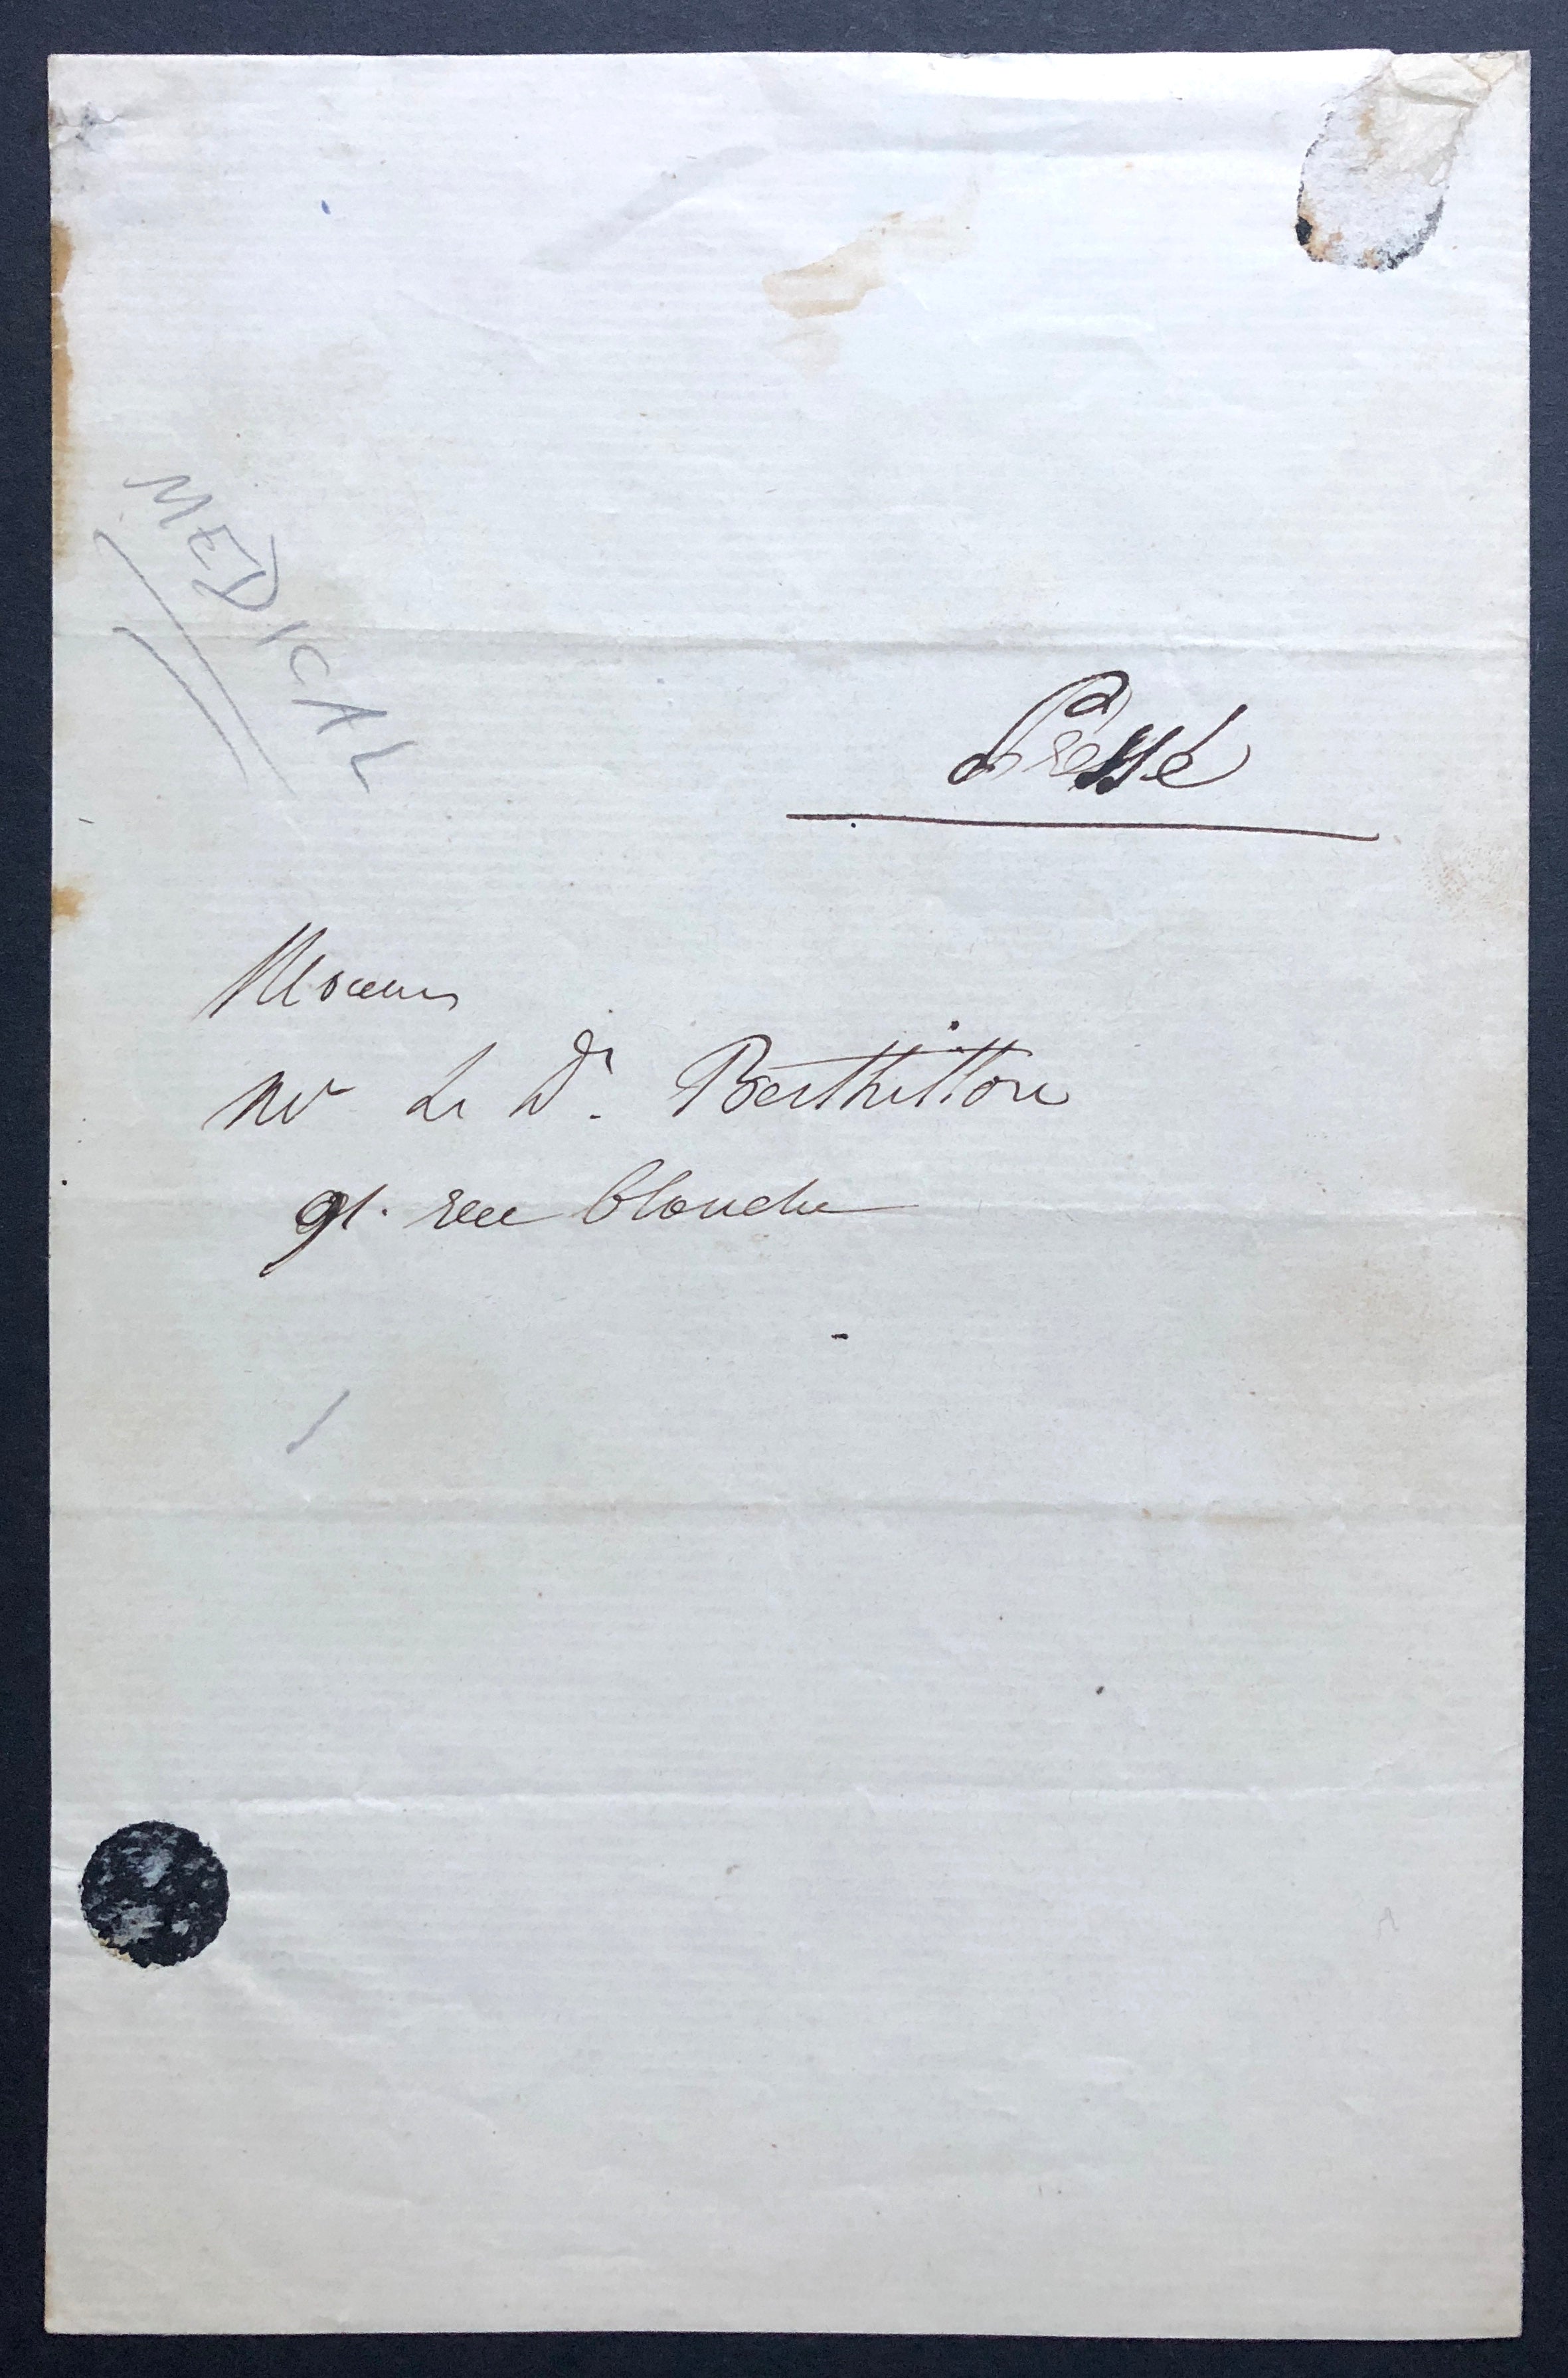 MEDICAL
Pressé
Monsieur
Le Dr. Berthillon
91. rue blanche